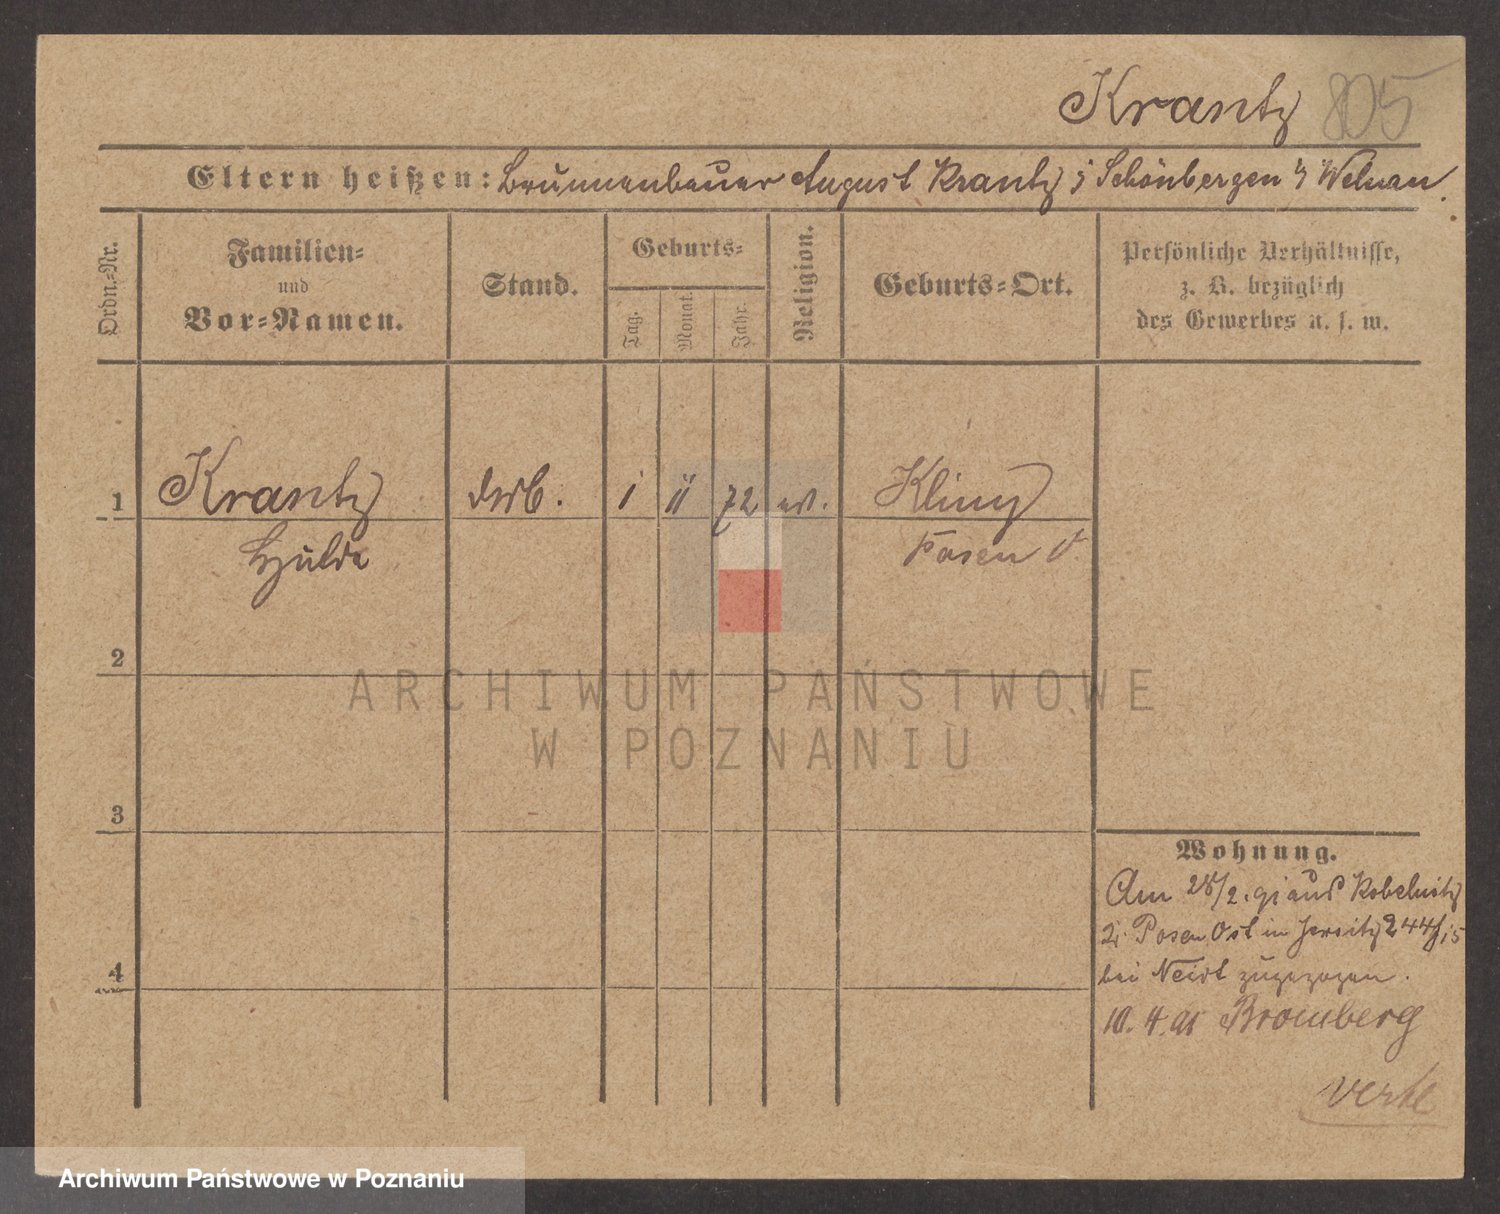 Krantz 805
Eltern heißen: Brunnenbauer August Krantz; Schönbergen Welnau.
Ordn.-Nr.
Familien-
und
Vor-Namen.
Stand.
Geburts-
Tag.
Monat.
Jahr.
Religion.
Geburts-Ort.
Persönliche Verhältnisse,
z. B. bezüglich
des Gewerbes u. s. w.
1 Krantz 1 11 72 ev. Kliny
Hulda Posen O.
2
3
4
ARCHIWUM PAŃSTWOWE
W POZNANIU
Wohnung.
Am 28/2. 91 aus Kobelnitz
Posen Ost in Jersitz 244
bei zugezogen.
10. 4. 91 Bromberg
verte
Archiwum Państwowe w Poznaniu